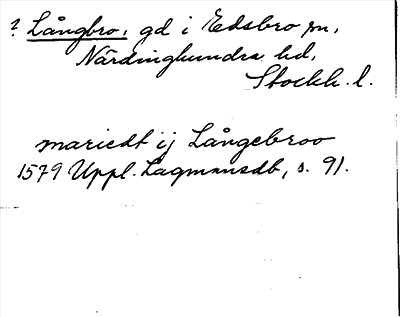 ? Långbro, gd i Edsbro sn,
Närdinghundra hd,
Stockh. l.
mariedt ij Långebroo
1579 Uppl. Lagmansdb, s. 91.